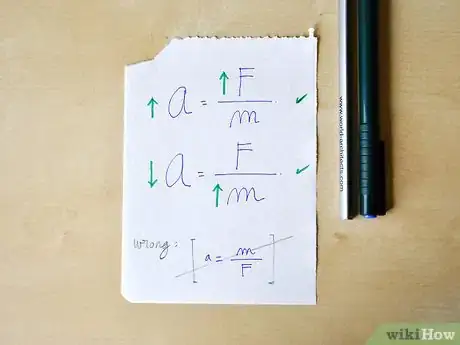 ↑ a = ↑F/m ✓
↓ a = F/↑m ✓
wrong: [a = m/F]
www.world-architects.com
wikiHow